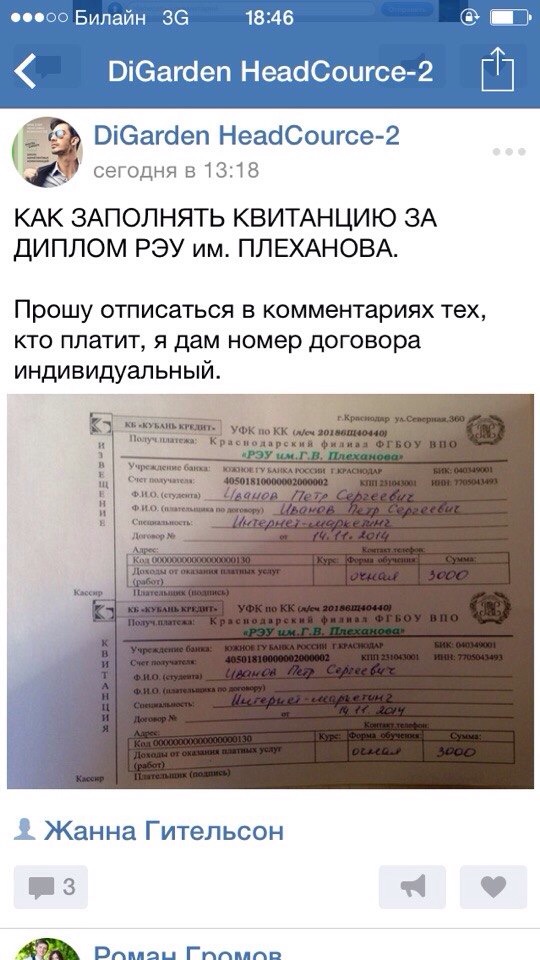 Билайн 3G 18:46
DiGarden HeadCource-2
DiGarden HeadCource-2
сегодня в 13:18
КАК ЗАПОЛНЯТЬ КВИТАНЦИЮ ЗА
ДИПЛОМ РЭУ им. ПЛЕХАНОВА.
Прошу отписаться в комментариях тех,
кто платит, я дам номер договора
индивидуальный.
г.Краснодар ул.Северная,360
КБ «КУБАНЬ КРЕДИТ» УФК по КК (л/сч 20186Щ40440)
Получ.платежа: Краснодарский филиал ФГБОУ ВПО
«РЭУ им.Г.В. Плеханова»
ИЗВЕЩЕНИЕ
Учреждение банка: ЮЖНОЕ ГУ БАНКА РОССИИ Г.КРАСНОДАР БИК: 040349001
Счет получателя: 40501810000002000002 КПП 231043001 ИНН: 7705043493
Ф.И.О. (студента) Иванов Петр Сергеевич
Ф.И.О. (плательщика по договору) Иванов Петр Сергеевич
Специальность: Интернет-маркетинг
Договор № от 14.11.2014
Адрес: Контакт.телефон:
Код 00000000000000000130 Курс: Форма обучения: Сумма:
Доходы от оказания платных услуг очная 3000
(работ)
Кассир Плательщик (подпись)
КБ «КУБАНЬ КРЕДИТ» УФК по КК (л/сч 20186Щ40440)
Получ.платежа: Краснодарский филиал ФГБОУ ВПО
«РЭУ им.Г.В. Плеханова»
КВИТАНЦИЯ
Учреждение банка: ЮЖНОЕ ГУ БАНКА РОССИИ Г.КРАСНОДАР БИК: 040349001
Счет получателя: 40501810000002000002 КПП 231043001 ИНН: 7705043493
Ф.И.О. (студента) Иванов Петр Сергеевич
Ф.И.О. (плательщика по договору)
Специальность: Интернет-маркетинг
Договор № от 14.11.2014
Адрес: Контакт.телефон:
Код 00000000000000000130 Курс: Форма обучения: Сумма:
Доходы от оказания платных услуг очная 3000
(работ)
Кассир Плательщик (подпись)
Жанна Гительсон
3
Роман Громов